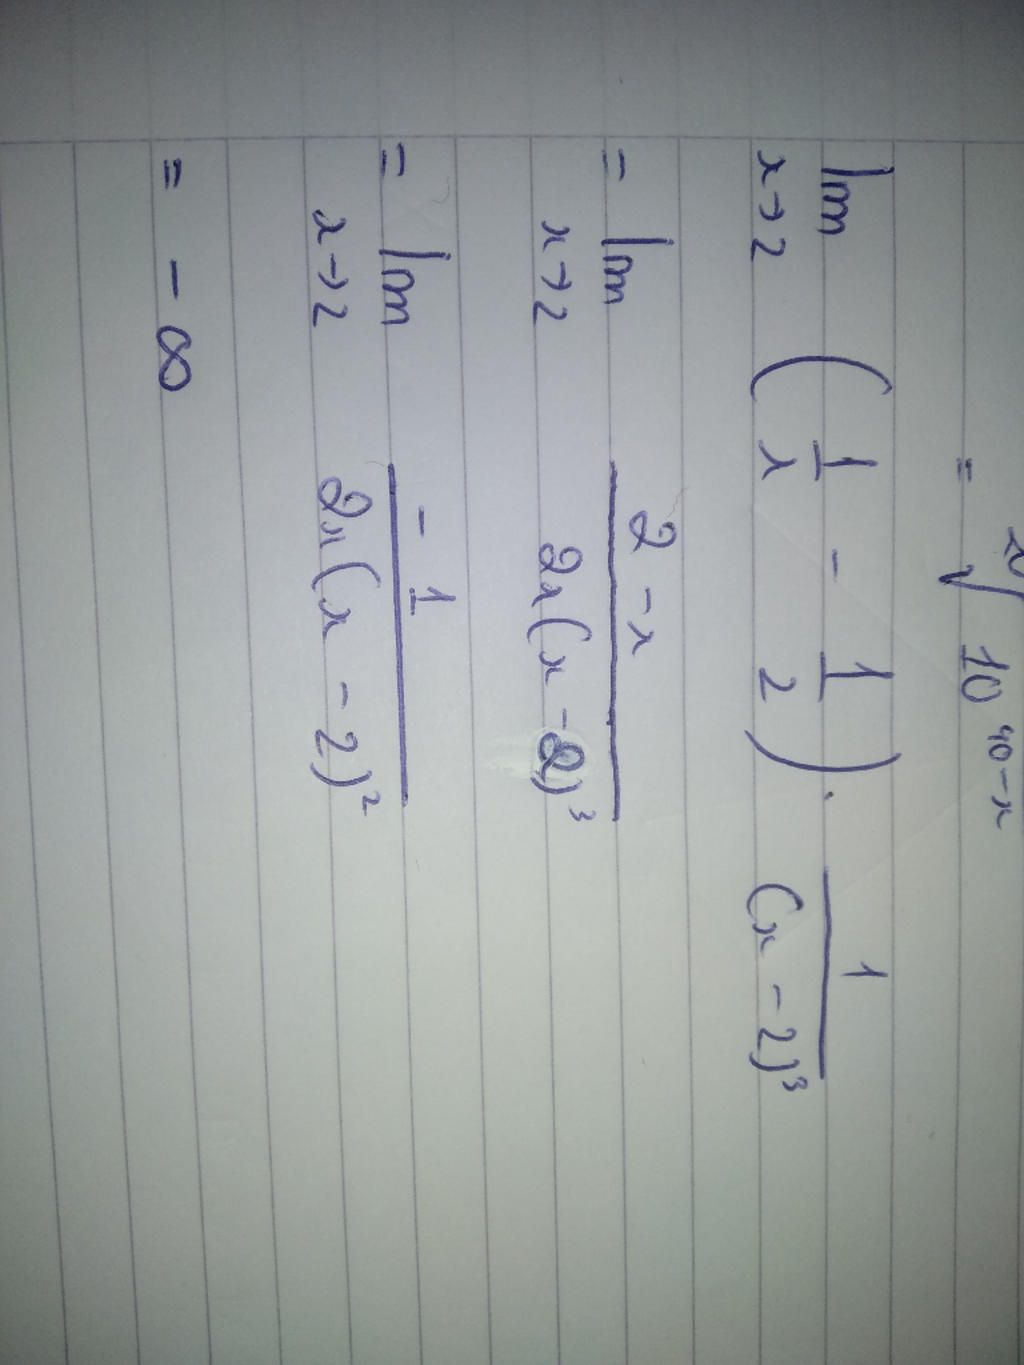 = √10^(40-x)
lim x→2 (1/x - 1/2) · 1/(x - 2)³
= lim x→2 (2 - x)/(2x(x - 2)³)
= lim x→2 (-1)/(2x(x - 2)²)
= - ∞